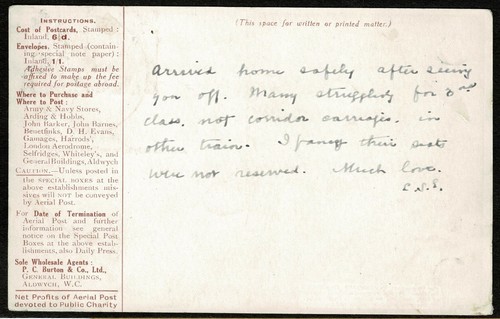 INSTRUCTIONS.
Cost of Postcards, Stamped :
Inland, 6½d.
Envelopes, Stamped (contain-
ing special note paper) :
Inland, 1/1.
Adhesive Stamps must be
affixed to make up the fee
required for postage abroad.
Where to Purchase and
Where to Post :
Army & Navy Stores,
Arding & Hobbs,
John Barker, John Barnes,
Benetfinks, D. H. Evans,
Gamages, Harrods',
London Aerodrome,
Selfridges, Whiteley's, and
General Buildings, Aldwych
CAUTION.—Unless posted in
the SPECIAL BOXES at the
above establishments mis-
sives will NOT be conveyed
by Aerial Post.
For Date of Termination of
Aerial Post and further
information see general
notice on the Special Post
Boxes at the above estab-
lishments, also Daily Press.
Sole Wholesale Agents :
P. C. Burton & Co., Ltd.,
GENERAL BUILDINGS,
ALDWYCH, W.C.
Net Profits of Aerial Post
devoted to Public Charity
(This space for written or printed matter.)
Arrived home safely after seeing
you off. Many struggling for 3rd
class, not corridor carriages, in
other train. I fancy their seats
were not reserved. Much love.